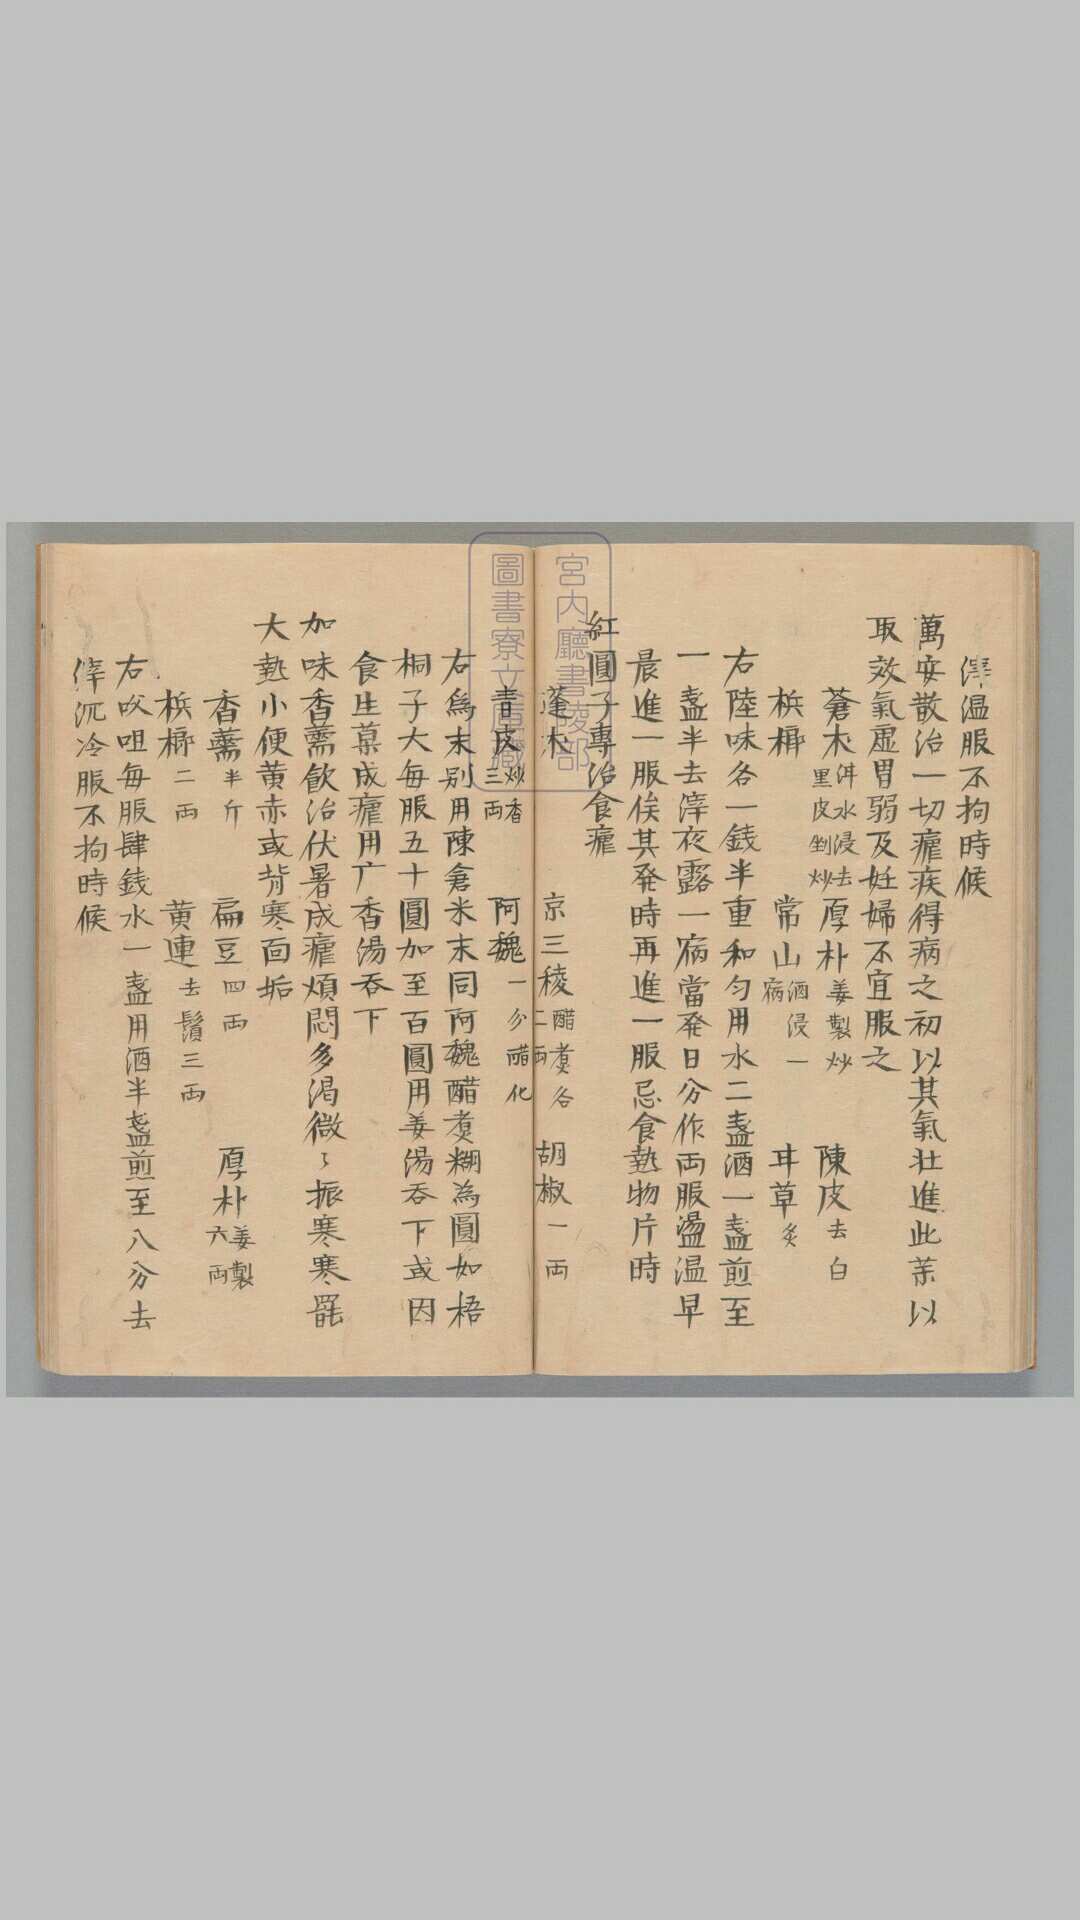 滓温服不拘時候
萬安散治一切瘧疾得病之初以其氣壯進此薬以
取效氣虛胃弱及妊婦不宜服之
蒼朮泔水浸去黒皮剉炒 厚朴姜製炒 陳皮去白
梹榔 常山酒浸一宿 甘草炙
右陸味各一銭半重和匀用水二盞酒一盞煎至
一盞半去滓夜露一宿當発日分作両服盪温早
晨進一服俟其発時再進一服忌食熱物片時
紅圓子專治食瘧
蓬朮 京三稜醋煑各二両 胡椒一両
青皮炒香三両 阿魏一分醋化
右爲末别用陳倉米末同阿魏醋煑糊為圓如梧
桐子大毎服五十圓加至百圓用姜湯吞下或因
食生菓成瘧用广香湯吞下
加味香薷飲治伏暑成瘧煩悶多渇微〻振寒寒罷
大熱小便黄赤或背寒面垢
香薷半斤 扁豆四両 厚朴姜製六両
梹榔二両 黄連去鬚三両
右㕮咀毎服肆銭水一盞用酒半盞煎至八分去
滓沉冷服不拘時候
宮内廳書陵部
圖書寮文庫藏